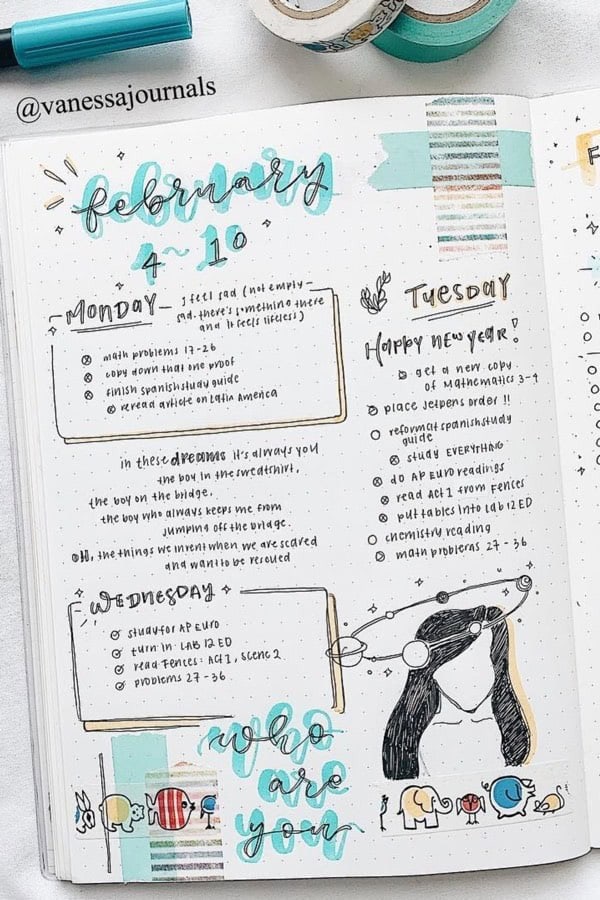 @vanessajournals
february
4~10
MONDAY
I feel sad (not empty-
sad. there's something there
and it feels lifeless)
math problems 17-26
copy down that one proof
finish spanish study guide
reread article on Latin America
in these dreams it's always you
the boy in the sweatshirt,
the boy on the bridge,
the boy who always keeps me from
jumping off the bridge.
oh, the things we invent when we are scared
and want to be rescued
WEDNESDAY
study for AP Euro
turn in LAB 12 ED
read Fences: Act 1, scene 2
problems 27-36
who
are
you
TUESDAY
Happy new year!
get a new copy
of Mathematics 3-4
place Jetpens order !!
reformat spanish study
guide
study EVERYTHING
do AP Euro readings
read Act 1 from Fences
put tables into Lab 12 ED
chemistry reading
math problems 27-36
F